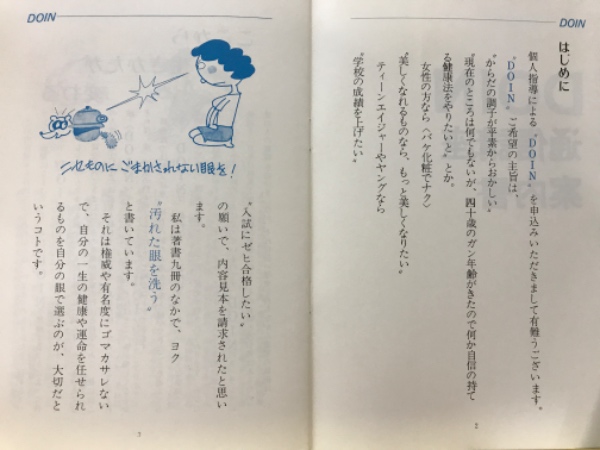 DOIN
はじめに
個人指導による〝DOIN〟を申込みいただきまして有難うございます。
〝DOIN〟ご希望の主旨は、
〝からだの調子が平素からおかしい〟
〝現在のところは何でもないが、四十歳のガン年齢がきたので何か自信の持て
る健康法をやりたい〟とか。
女性の方なら〈バケ化粧でナク〉
〝美しくなれるものなら、もっと美しくなりたい。〟
ティーンエイジャーやヤングなら
〝学校の成績を上げたい〟
2
DOIN
ニセものに ごまかされない眼を!
〝入試にゼヒ合格したい〟
の願いで、内容見本を請求されたと思い
ます。
私は著書九冊のなかで、ヨク
〝汚れた眼を洗う〟
と書いています。
それは権威や有名度にゴマカサレない
で、自分の一生の健康や運命を任せられ
るものを自分の眼で選ぶのが、大切だと
いうコトです。
3